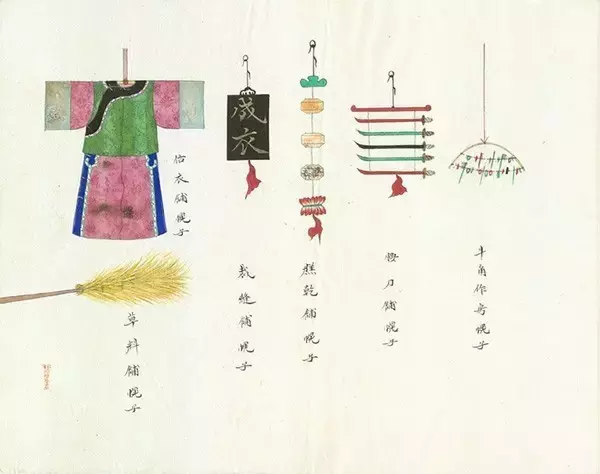 牛角作房幌子
快刀舖幌子
糕乾舖幌子
成衣
裁縫舖幌子
估衣舖幌子
草料舖幌子